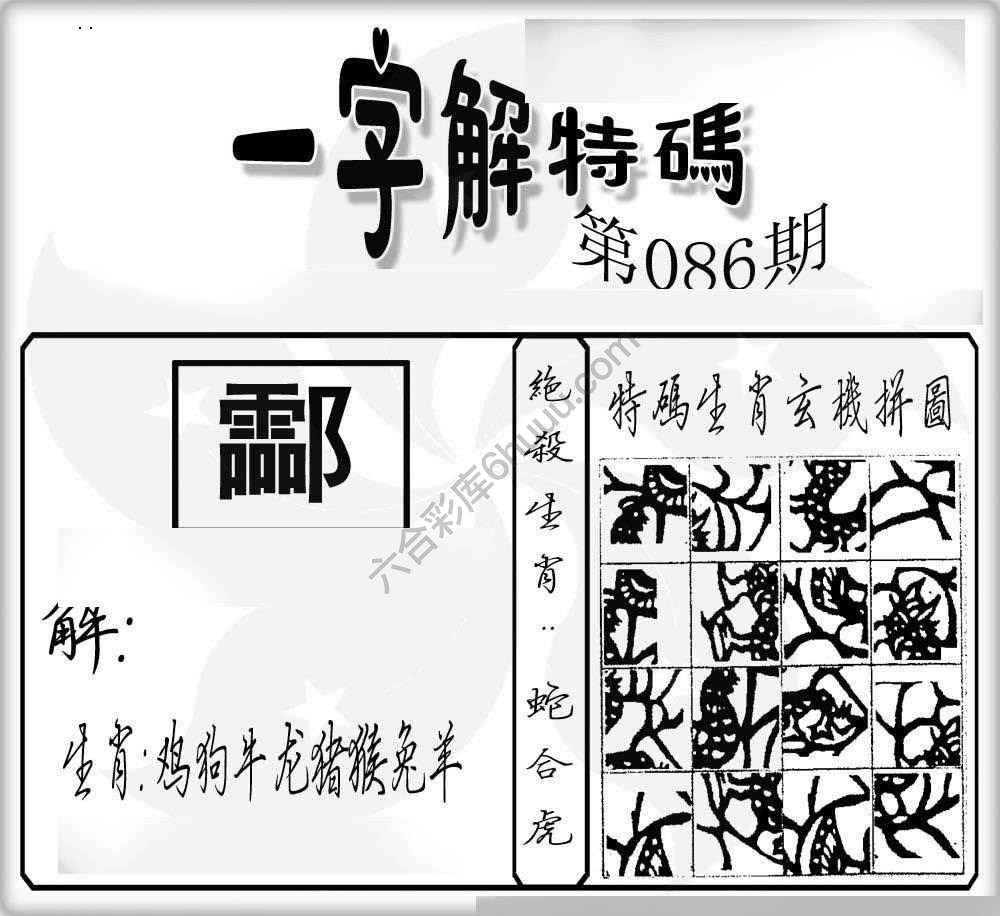 一字解特碼
第086期
酃
解:
生肖:鸡狗牛龙猪猴兔羊
絶殺生肖:蛇合虎
特碼生肖玄機拼圖
六合彩库6huuu.com